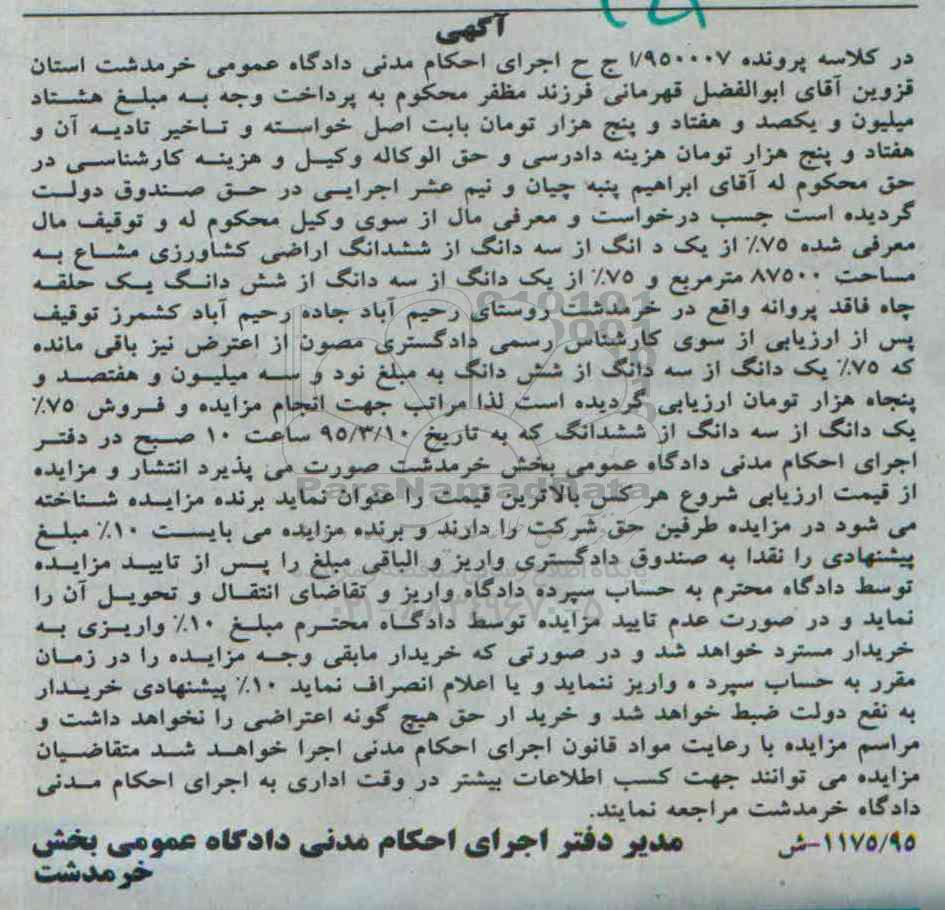 آگهی
در کلاسه پرونده ۱/۹۵۰۰۰۷ ج ح اجرای احکام مدنی دادگاه عمومی خرمدشت استان
قزوین آقای ابوالفضل قهرمانی فرزند مظفر محکوم به پرداخت وجه به مبلغ هشتاد
میلیون و یکصد و هفتاد و پنج هزار تومان بابت اصل خواسته و تاخیر تادیه آن و
هفتاد و پنج هزار تومان هزینه دادرسی و حق الوکاله وکیل و هزینه کارشناسی در
حق محکوم له آقای ابراهیم پنبه چیان و نیم عشر اجرایی در حق صندوق دولت
گردیده است جسب درخواست و معرفی مال از سوی وکیل محکوم له و توقیف مال
معرفی شده ۷۵٪ از یک د انگ از سه دانگ از ششدانگ اراضی کشاورزی مشاع به
مساحت ۸۷۵۰۰ مترمربع و ۷۵٪ از یک دانگ از سه دانگ از شش دانگ یک حلقه
چاه فاقد پروانه واقع در خرمدشت روستای رحیم آباد جاده رحیم آباد کشمرز توقیف
پس از ارزیابی از سوی کارشناس رسمی دادگستری مصون از اعترض نیز باقی مانده
که ۷۵٪ یک دانگ از سه دانگ از شش دانگ به مبلغ نود و سه میلیون و هفتصد و
پنجاه هزار تومان ارزیابی گردیده است لذا مراتب جهت انجام مزایده و فروش ۷۵٪
یک دانگ از سه دانگ از ششدانگ که به تاریخ ۹۵/۳/۱۰ ساعت ۱۰ صبح در دفتر
اجرای احکام مدنی دادگاه عمومی بخش خرمدشت صورت می پذیرد انتشار و مزایده
از قیمت ارزیابی شروع هر کس بالاترین قیمت را عنوان نماید برنده مزایده شناخته
می شود در مزایده طرفین حق شرکت را دارند و برنده مزایده می بایست ۱۰٪ مبلغ
پیشنهادی را نقدا به صندوق دادگستری واریز و الباقی مبلغ را پس از تایید مزایده
توسط دادگاه محترم به حساب سپرده دادگاه واریز و تقاضای انتقال و تحویل آن را
نماید و در صورت عدم تایید مزایده توسط دادگاه محترم مبلغ ۱۰٪ واریزی به
خریدار مسترد خواهد شد و در صورتی که خریدار مابقی وجه مزایده را در زمان
مقرر به حساب سپرد ه واریز ننماید و یا اعلام انصراف نماید ۱۰٪ پیشنهادی خریدار
به نفع دولت ضبط خواهد شد و خرید ار حق هیچ گونه اعتراضی را نخواهد داشت و
مراسم مزایده با رعایت مواد قانون اجرای احکام مدنی اجرا خواهد شد متقاضیان
مزایده می توانند جهت کسب اطلاعات بیشتر در وقت اداری به اجرای احکام مدنی
دادگاه خرمدشت مراجعه نمایند.
۱۱۷۵/۹۵-ش مدیر دفتر اجرای احکام مدنی دادگاه عمومی بخش
خرمدشت
ParsNamadData